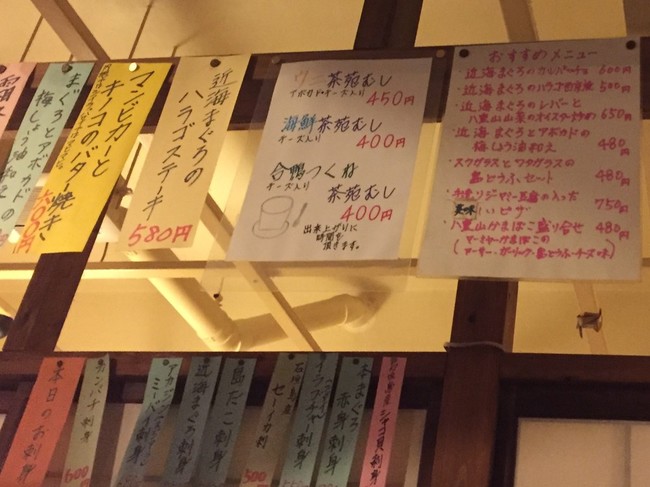 おすすめメニュー
・近海まぐろのカルパッチョ 600円
・近海まぐろのハラゴの唐揚 500円
・近海まぐろのレバーと
八重山山菜のオイスターソース炒め 650円
・近海まぐろとアボカドの
梅しょうゆ和え 480円
・スクガラスとワタガラスの
島とうふセット 480円
美味しいピザ 750円
・八重山かまぼこ盛り合せ 480円
ウニ茶苑むし
アボカド・チーズ入り 450円
海鮮茶苑むし
チーズ入り 400円
合鴨つくね
チーズ入り 茶苑むし
400円
出来上がりに
時間を
頂きます。
近海まぐろの
ハラゴステーキ
580円
マンビカーと
キノコのバター焼き
まぐろとアボカドの
梅しょうゆ和え
本日のお刺身
ガンバナ刺身
600
ミーバイ刺身
近海まぐろ刺身
島だこ刺身
石垣島産
セーイカ刺
500
イラブチャー刺身
本まぐろ
赤身刺身
シャコ貝刺身